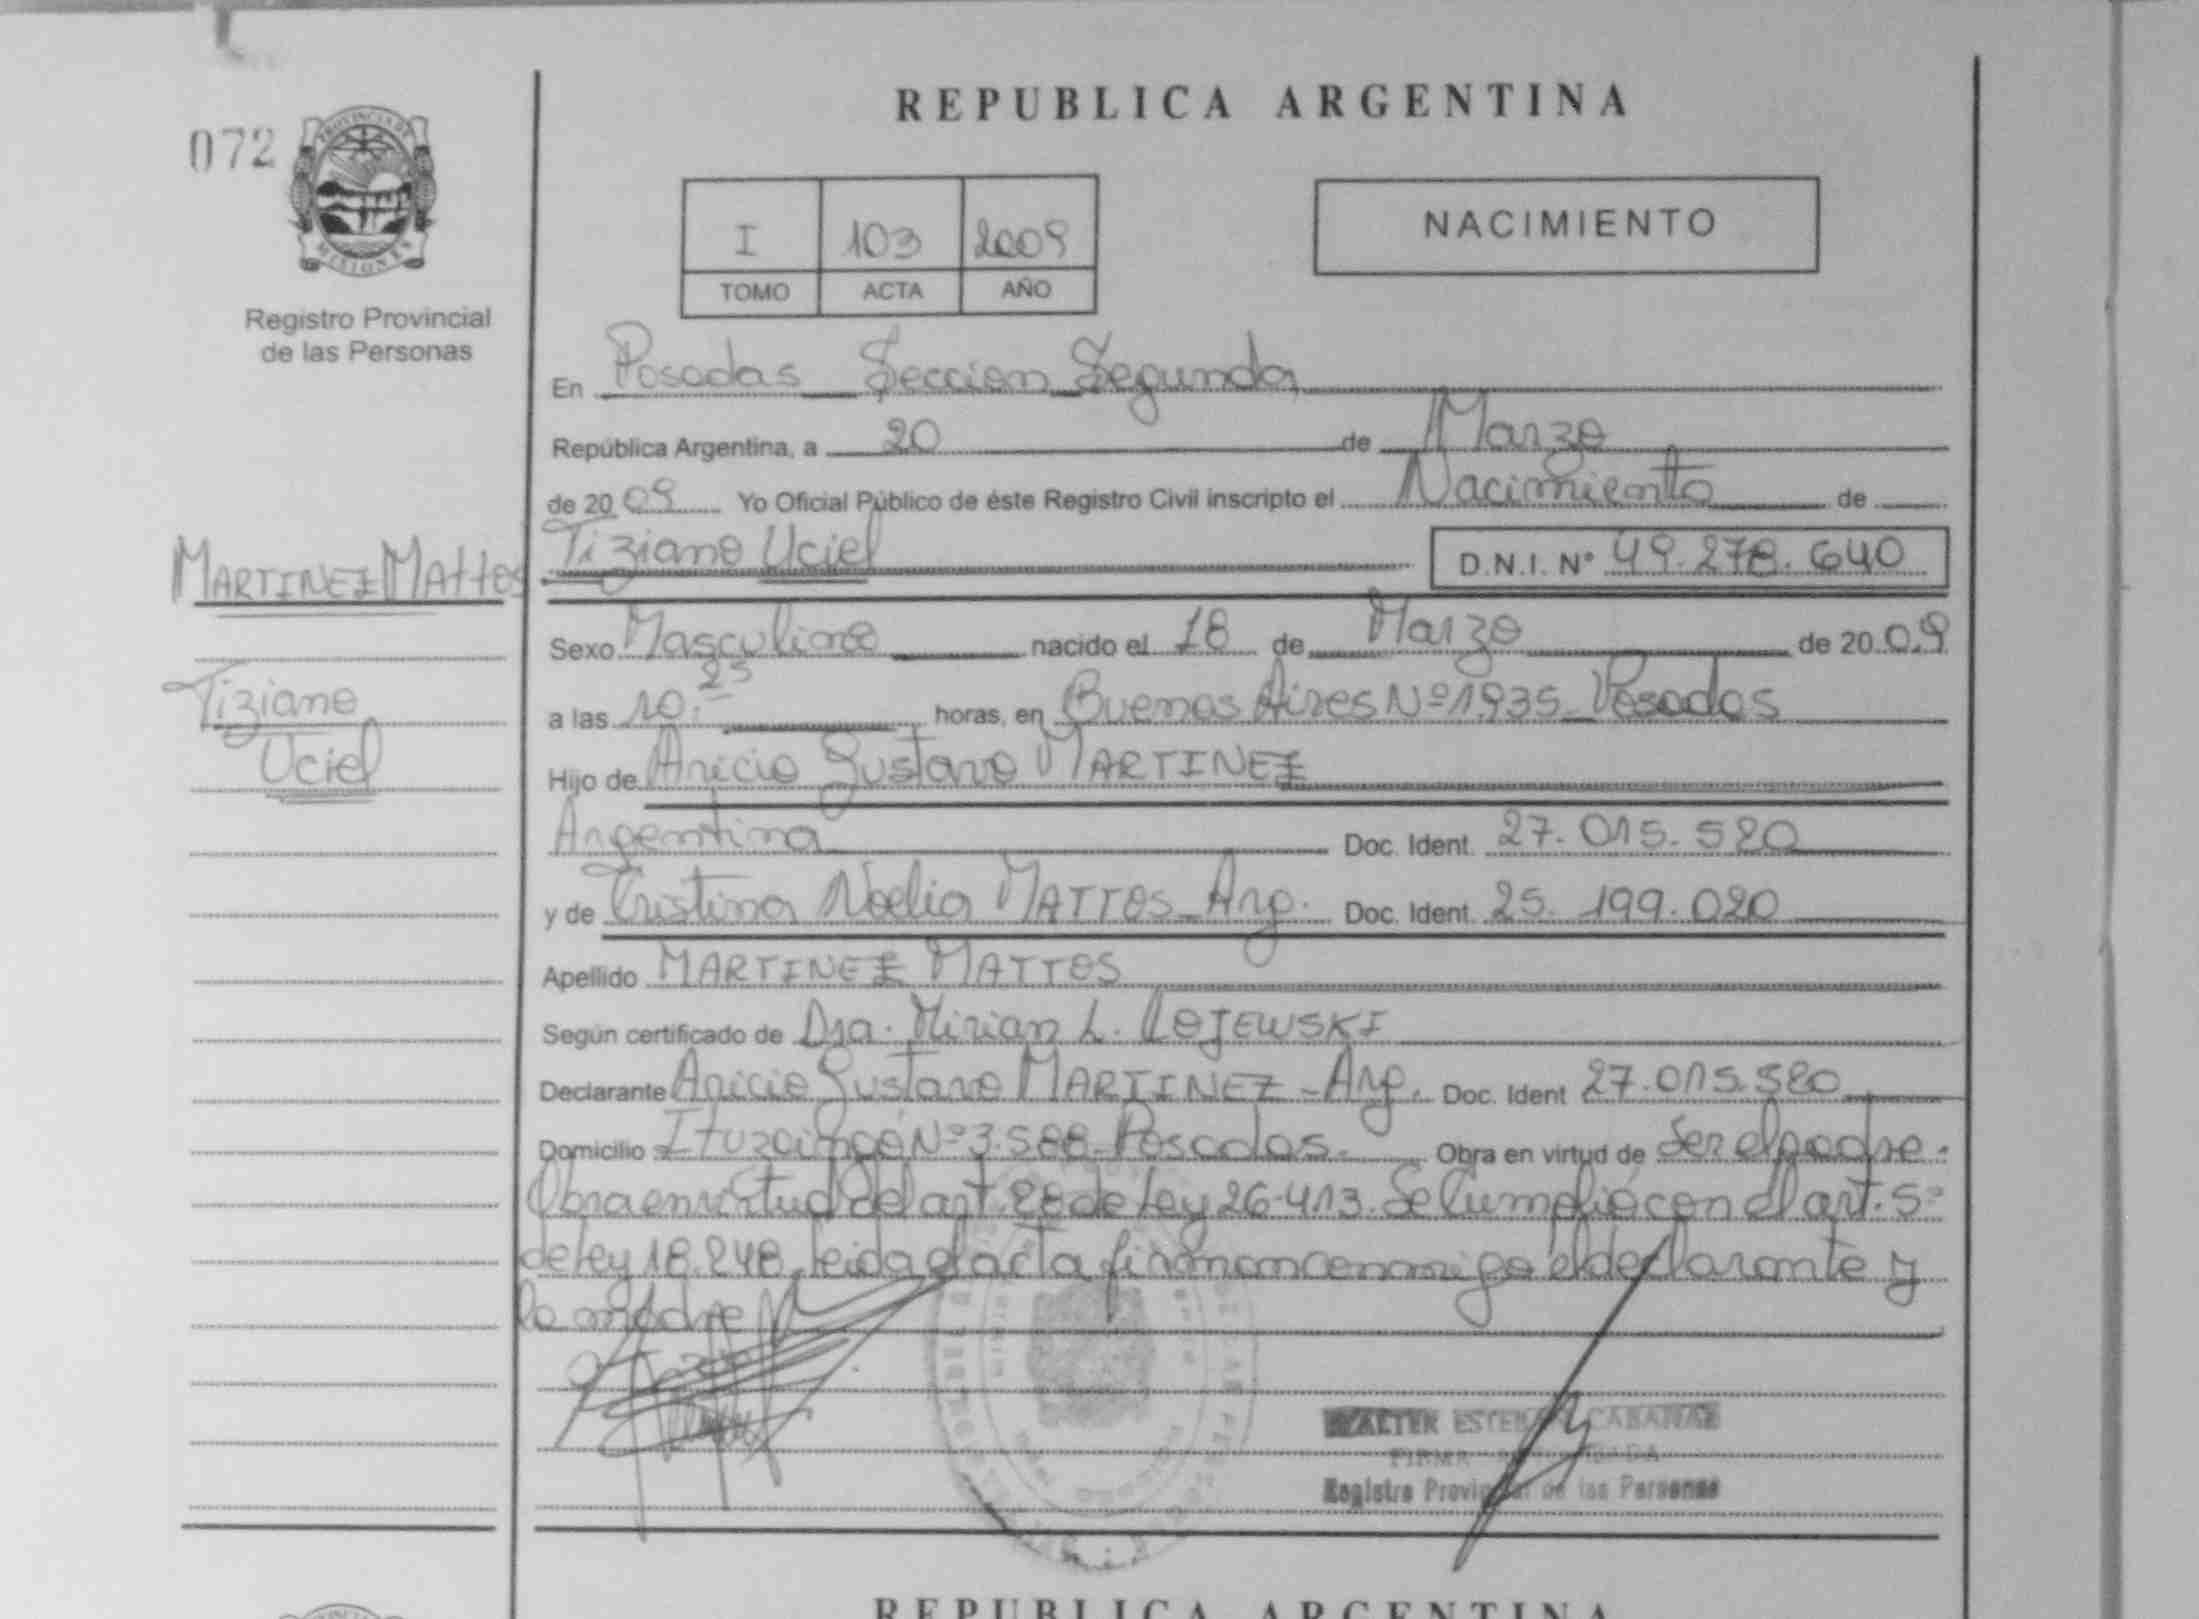 REPUBLICA ARGENTINA
072
PROVINCIA DE
MISIONES
Registro Provincial
de las Personas
I 103 2009
TOMO ACTA AÑO
NACIMIENTO
En Posadas Seccion Segunda
República Argentina, a 20 de Marzo
de 2009 Yo Oficial Público de éste Registro Civil inscripto el Nacimiento de
MARTINEZ MATTOS
Tiziano Uciel D.N.I. Nº 49.278.640
Sexo Masculino nacido el 18 de Marzo de 2009
Tiziano
Uciel
a las 10:25 horas, en Buenos Aires Nº 1935 Posadas
Hijo de Aricio Gustavo MARTINEZ
Argentina Doc. Ident. 27.015.520
y de Cristina Noelia MATTOS - Arg. Doc. Ident. 25.199.020
Apellido MARTINEZ MATTOS
Según certificado de Dra. Mirian L. LOJEWSKI
Declarante Aricio Gustavo MARTINEZ - Arg. Doc. Ident 27.015.520
Domicilio Ituzaingó Nº 3.588 - Posadas. Obra en virtud de ser el padre.
Obra en virtud del art. 28 de Ley 26.413. Se Cumplió con el art. 5º
de Ley 18.248, leida el acta firman conmigo el declarante y
la madre
WALTER ESTEBAN
Registro Provincial de las Personas
REPUBLICA ARGENTINA